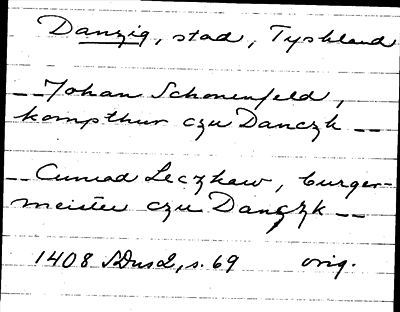 Danzig, stad, Tyskland
-- Johan Schonenfeld,
kompthur czu Danczk --
-- Cunrad Leczkaw, burger-
meister czu Danczk --
1408 SDns 2, s. 69 orig.